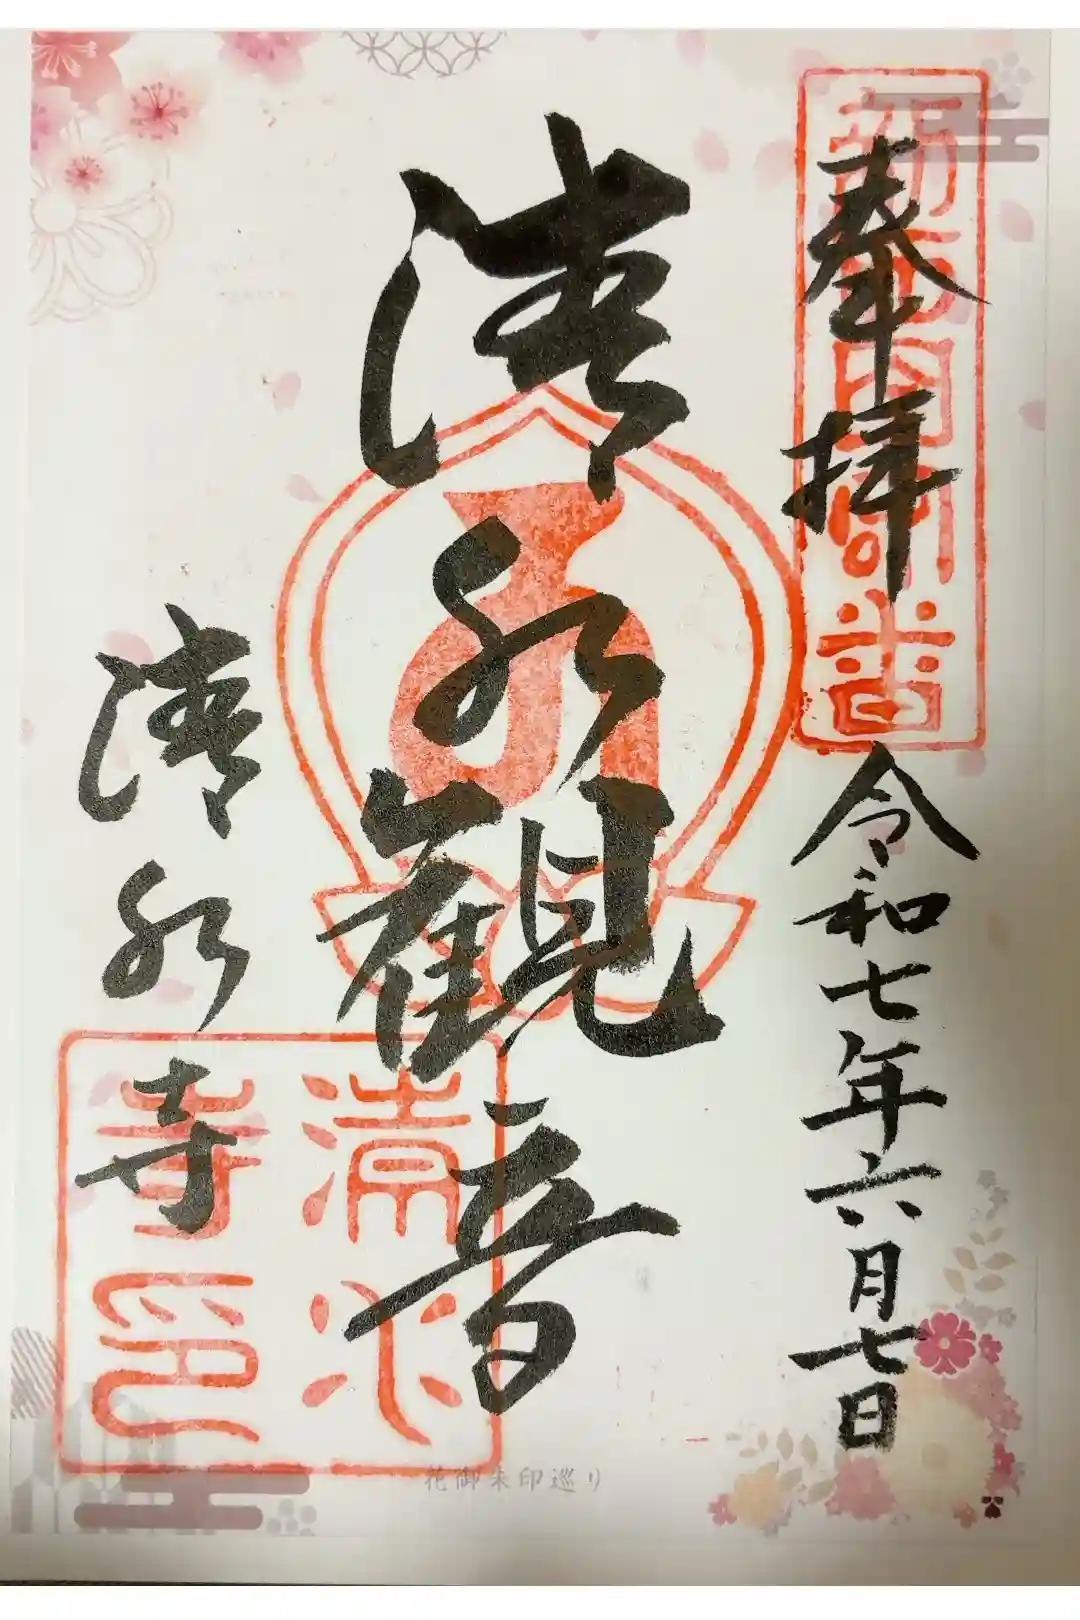 奉拝
令和七年六月七日
清水観音
清水寺
清水
寺印
花御朱印巡り